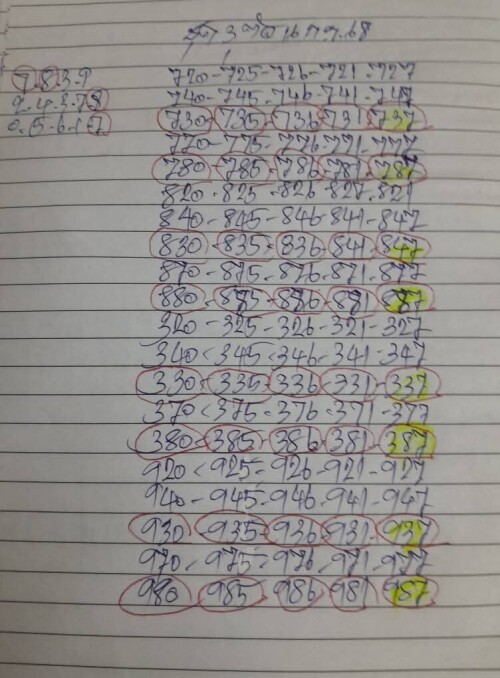 สูตร 3 ตัว 16 กค.68
7.8.3.9
2.4.3.7.8
0.5.6.1.7
720-725-726-721-727
740-745-746-741-747
730-735-736-731-737
770-775-776-771-777
780-785-786-781-787
820-825-826-827-821
840-845-846-841-847
830-835-836-841-847
870-875-876-871-877
880-885-886-881-887
320-325-326-321-327
340-345-346-341-347
330-335-336-331-337
370-375-376-371-377
380-385-386-381-387
920-925-926-921-927
940-945-946-941-947
930-935-936-931-937
970-975-976-971-977
980-985-986-981-987